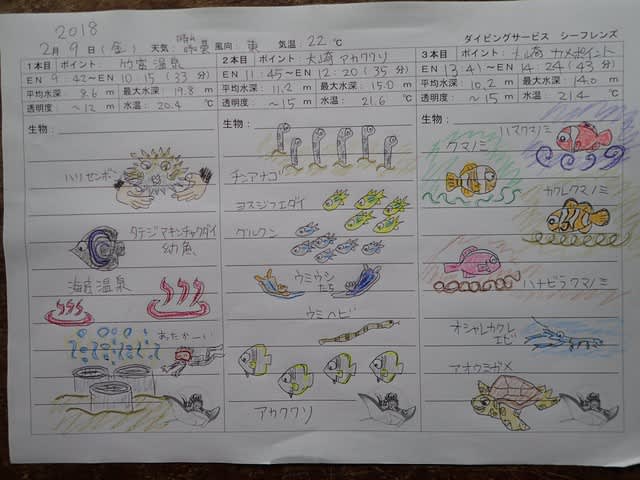 2018
2月9日(金) 天気: 晴れ 時々 曇 風向: 東 気温: 22℃ ダイビングサービス シーフレンズ
1本目 ポイント: 竹富 温泉
EN 9:42～EN 10:15 (33分)
平均水深: 8.6 m 最大水深: 19.8 m
透明度: ～12 m 水温: 20.4 ℃
生物:
ハリセンボン
タテジマキンチャクダイ
幼魚
海底温泉
あたたかーい
2本目 ポイント: 大崎 アカククリ
EN 11:45～EN 12:20 (35分)
平均水深: 11.2 m 最大水深: 15.0 m
透明度: ～15 m 水温: 21.6 ℃
生物:
チンアナゴ
ヨスジフエダイ
グルクン
ウミウシ
たち
ウミヘビ
アカククリ
3本目 ポイント: 大崎 カメポイント
EN 13:41～EN 14:24 (43分)
平均水深: 10.2 m 最大水深: 14.0 m
透明度: ～15 m 水温: 21.4 ℃
生物:
ハマクマノミ
クマノミ
カクレクマノミ
ハナビラクマノミ
オシャレカクレ
エビ
アオウミガメ